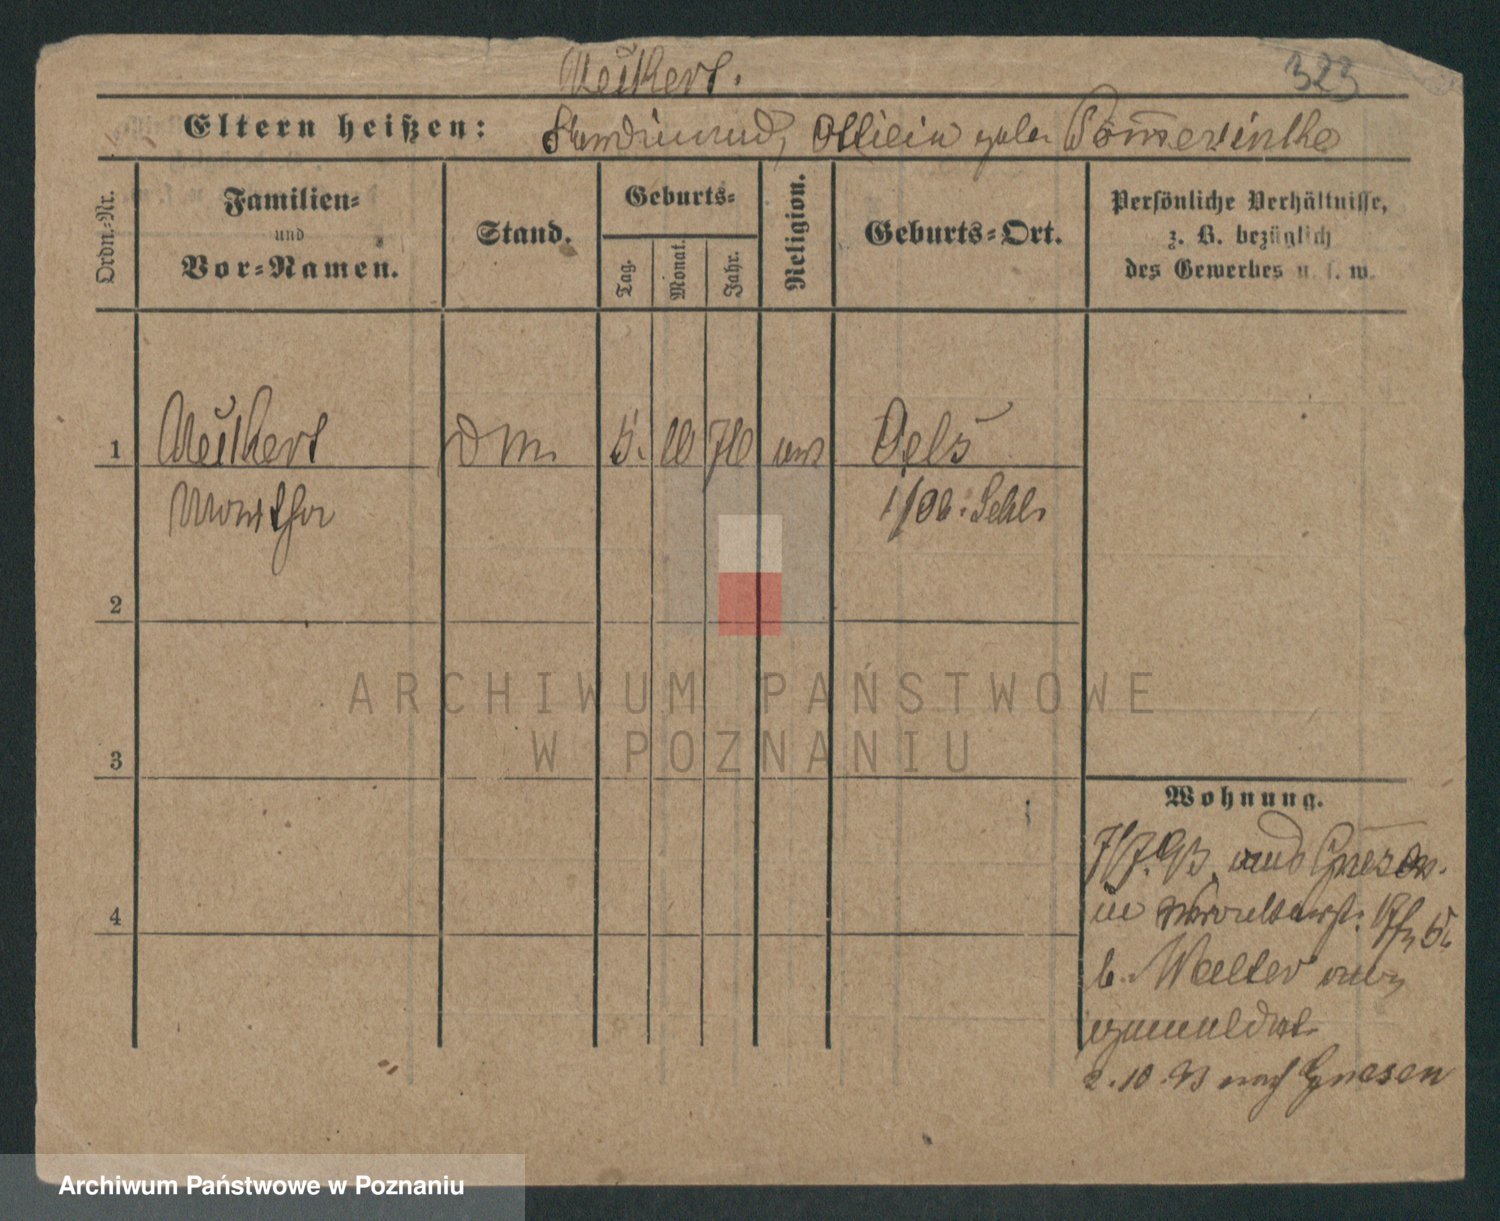 Neükert.
323
Eltern heißen: Ferdinand, Ottilie
Ordn.-Nr.
Familien-
und
Vor-Namen.
Stand.
Geburts-
Tag.
Monat.
Jahr.
Religion.
Geburts-Ort.
Persönliche Verhältnisse,
z. B. bezüglich
des Gewerbes u. s. w.
1
Neükert
5.
10
Oels
Martha
i/Ob. Schl.
2
3
4
Wohnung.
7/7. 93. aus Gnesen.
in
b. Walter
angemeldet
2. 10. 93 nach Gnesen
ARCHIWUM PAŃSTWOWE
W POZNANIU
Archiwum Państwowe w Poznaniu